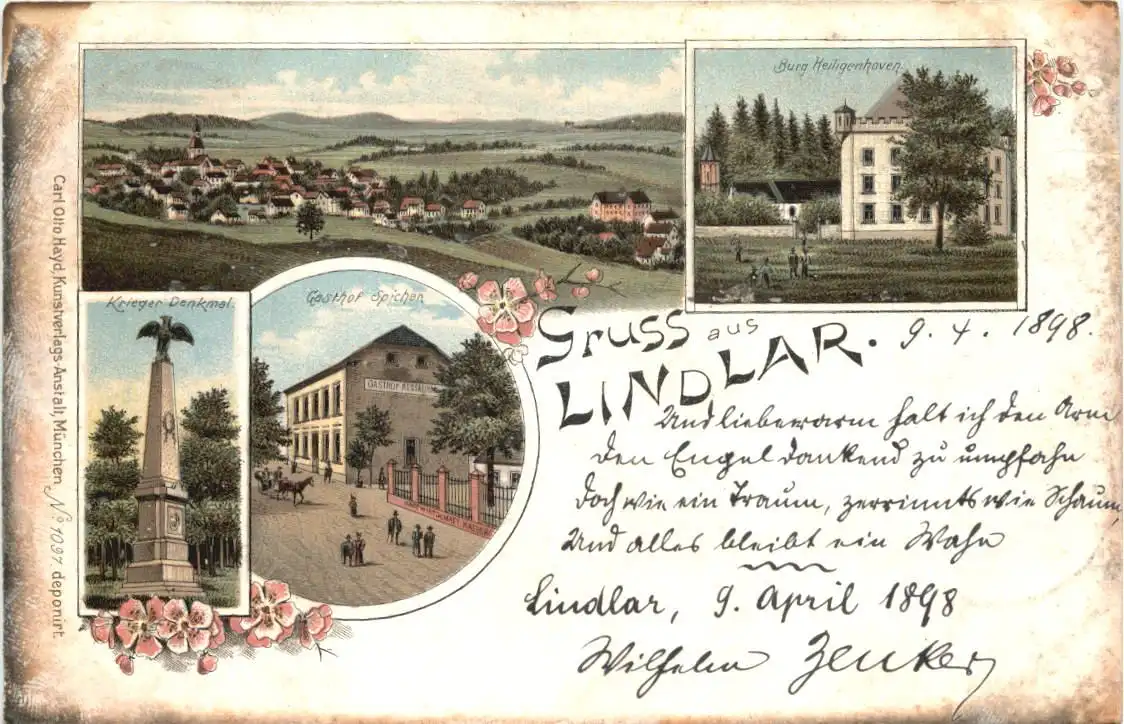 Burg Heiligenhoven.
Krieger Denkmal.
Gasthof Spicher
GASTHOF RESTAUR
Gruss aus
LINDLAR.
9. 4. 1898.
Und liebewarm halt ich den Arm
den Engel dankend zu umpfahn
doch wie ein Traum, zerrinnts wie Schaum,
Und alles bleibt ein Wahn
Lindlar, 9. April 1898
Wilhelm Zenker
Carl Otto Hayd, Kunstverlags-Anstalt, München No 1097 deponirt.